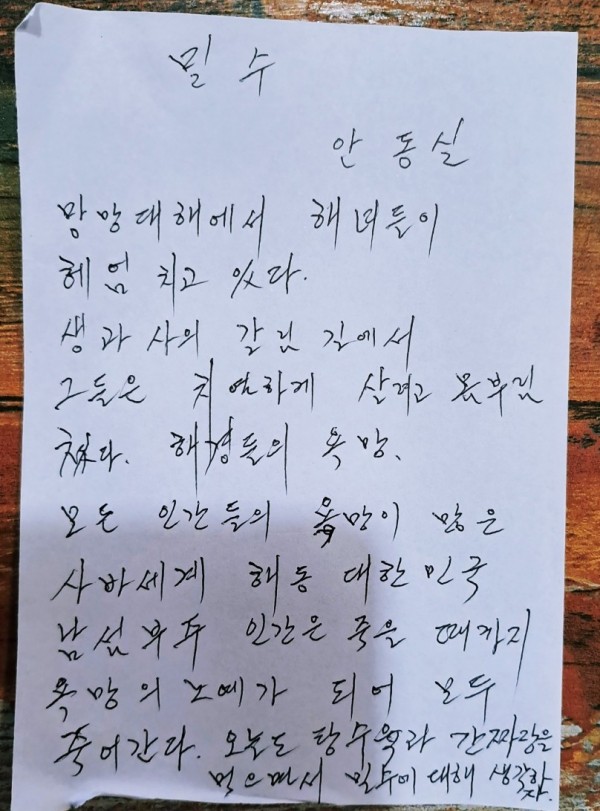 밀 수
안 동 실
망망대해에서 해녀들이
헤엄 치고 있다.
생과 사의 갈림 길에서
그들은 치열하게 살려고 몸부림
쳤다. 해경들의 욕망.
모든 인간들의 욕망이 많은
사바세계 해동 대한민국
남섬부주 인간은 죽을 때까지
욕망의 노예가 되어 모두
죽어간다. 오늘도 탕수육과 간짜장을
먹으며서 밀수에 대해 생각하
자.